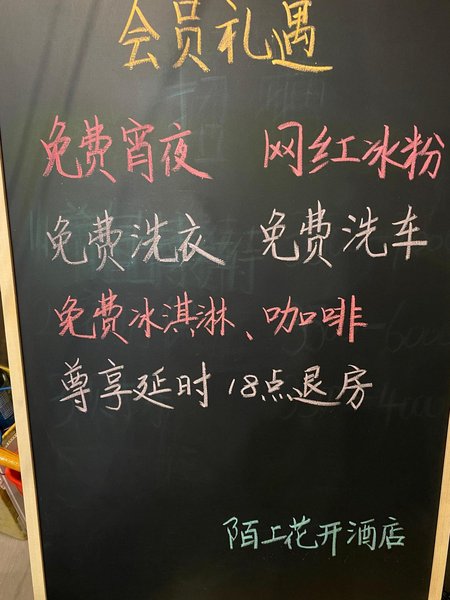 会员礼遇
免费宵夜 网红冰粉
免费洗衣 免费洗车
免费冰淇淋、咖啡
尊享延时18点退房
陌上花开酒店